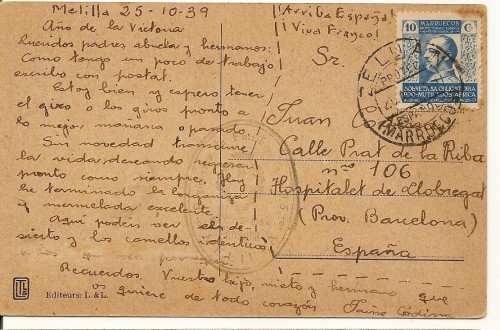 Melilla 25-10-39
¡Arriba España!
¡Viva Franco!
Año de la Victoria
Queridos padres abuela y hermanos:
Como tengo un poco de trabajo
escribo con postal.
Estoy bien y espero tener
el giro o los giros pronto a
lo mejor mañana o pasado.
Sin novedad transcurre
la vida, deseando regresar
pronto como siempre. Hoy
he terminado la longaniza
y mermelada excelente.
Aquí podéis ver el de-
sierto y los camellos identicos
a los que
Recuerdos. Vuestro hijo, nieto y hermano que
os quiere de todo corazón
Jaime
Editeurs: L. & L.
Sr.
Juan
Calle Prat de la Riba
nº 106
Hospitalet de Llobregat
(Prov. Barcelona)
España
MARRUECOS
10 Cs
(MARRUECOS)